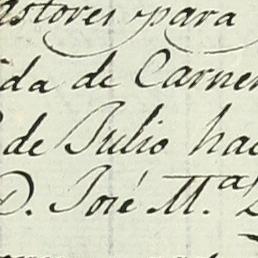 astores para
ida de Carne
de Julio hac
D. José M.ª